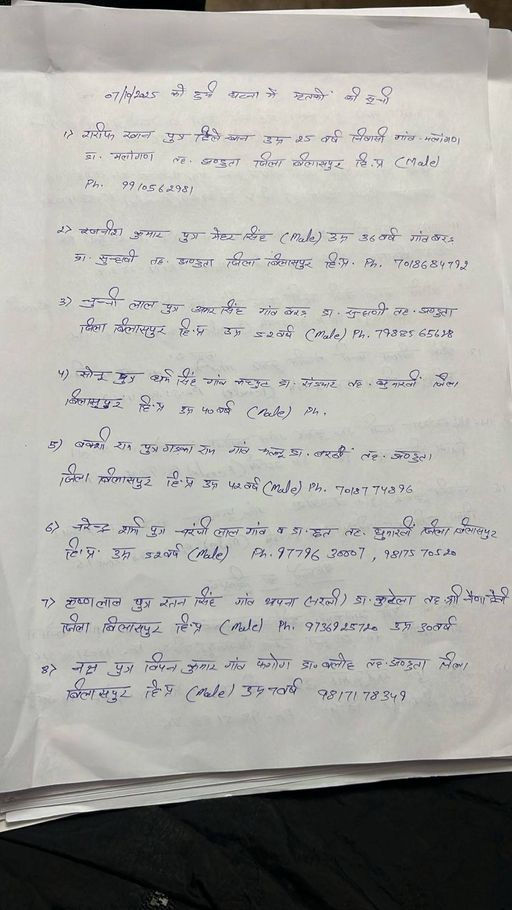 07/10/2025 को हुई घटना में मृतकों की सूची
1) शरीफ खान पुत्र खान उम्र 25 वर्ष निवासी गांव मलांगण
डा. मलांगण तह. झण्डुता जिला बिलासपुर हि.प्र (Male)
Ph. 9910562981
2) रजनीश कुमार पुत्र मेहर सिंह (Male) उम्र 36 वर्ष गांव बरड़
डा. सुन्हाणी तह. झण्डुता जिला बिलासपुर हि.प्र. Ph. 7018684792
3) चुन्नी लाल पुत्र अमर सिंह गांव बरड़ डा. सुन्हाणी तह. झण्डुता
जिला बिलासपुर हि.प्र उम्र 52 वर्ष (Male) Ph.
4) सोनू पुत्र कर्म सिंह गांव डा. तह. घुमारवीं जिला
बिलासपुर हि.प्र उम्र 40 वर्ष (Male) Ph.
5) बक्शी राम पुत्र राम गांव डा. बरठीं तह. झण्डुता
जिला बिलासपुर हि.प्र उम्र 42 वर्ष (Male) Ph. 7018774896
6) नरेन्द्र शर्मा पुत्र चरंजी लाल गांव व डा. छत तह. घुमारवीं जिला बिलासपुर
हि.प्र. उम्र 52 वर्ष (Male) Ph. 97796 30007, 98175 70520
7) कृष्ण लाल पुत्र रतन सिंह गांव थापना (नरली) डा. कुटेला तह. श्री नैणा देवी
जिला बिलासपुर हि.प्र (Male) Ph. 9736925720 उम्र 30 वर्ष
8) नक्ष पुत्र विपन कुमार गांव फगोग डा. बलोह तह. झण्डुता जिला
बिलासपुर हि.प्र (Male) उम्र 7 वर्ष 9817178349